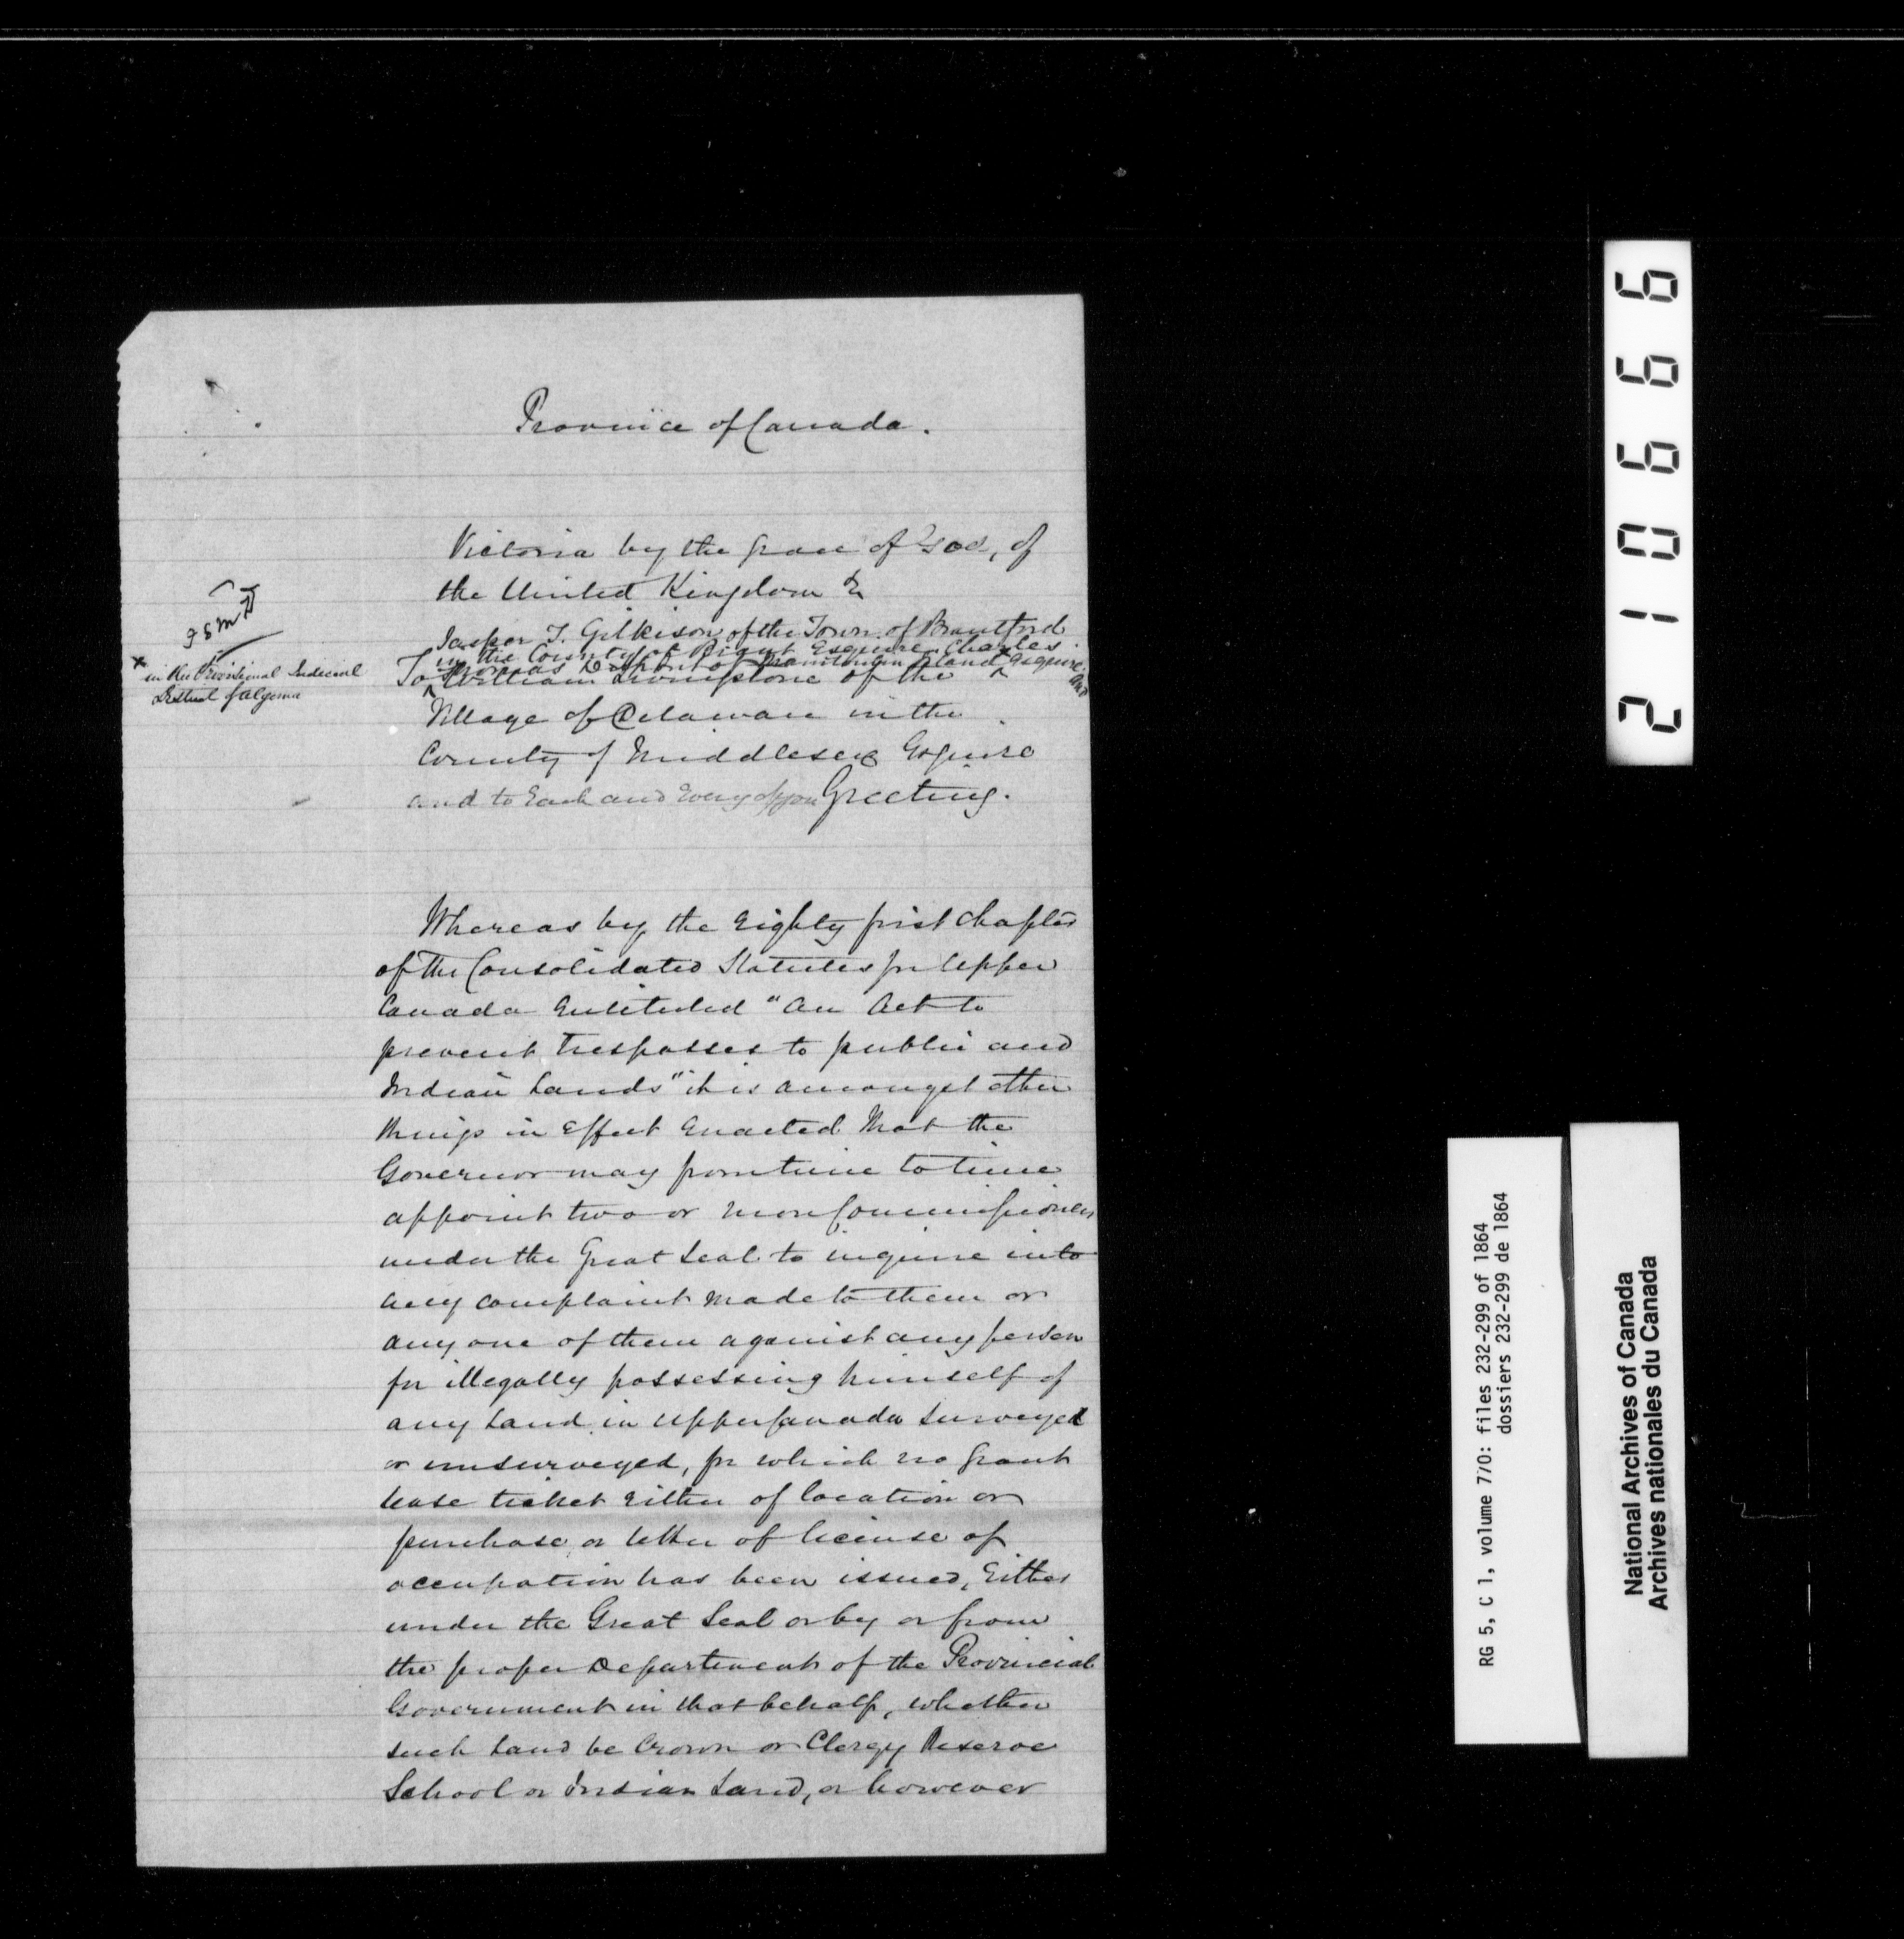 Province of Canada.
Victoria by the Grace of God, of
the United Kingdom &
Jasper T. Gilkison of the Town of Brantford
in the County of Brant Esquire Charles
Thomas Dupont of Manitoulin Island × Esquire and
To William Livingstone of the
× in the Provisional Judicial
District of Algoma
Village of Delaware in the
County of Middlesex Esquire
and to Each and Every of you Greeting.
Whereas by the Eighty first Chapter
of the Consolidated Statutes for Upper
Canada Entituled "An Act to
prevent trespasses to public and
Indian Lands" it is amongst other
things in Effect Enacted That the
Governor may from time to time
appoint two or more Commissioners
under the Great Seal to inquire into
any complaint made to them or
any one of them against any person
for illegally possessing himself of
any Land in Upper Canada surveyed
or unsurveyed, for which no Grant
lease ticket Either of location or
purchase or letter of license of
occupation has been issued, Either
under the Great Seal or by or from
the proper Department of the Provincial
Government in that behalf, whether
such Land be Crown or Clergy Reserve
School or Indian Land, or however
210666
RG 5, C 1, volume 770: files 232-299 of 1864
dossiers 232-299 de 1864
National Archives of Canada
Archives nationales du Canada